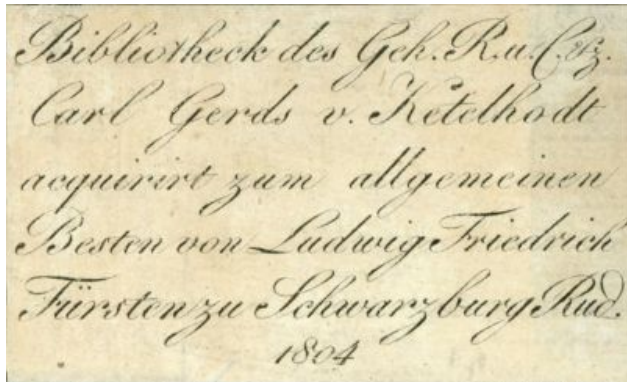 Bibliotheck des Geh. R. u. C. etz.
Carl Gerds v. Ketelhodt
acquirirt zum allgemeinen
Besten von Ludwig Friedrich
Fürsten zu Schwarzburg Rud.
1804